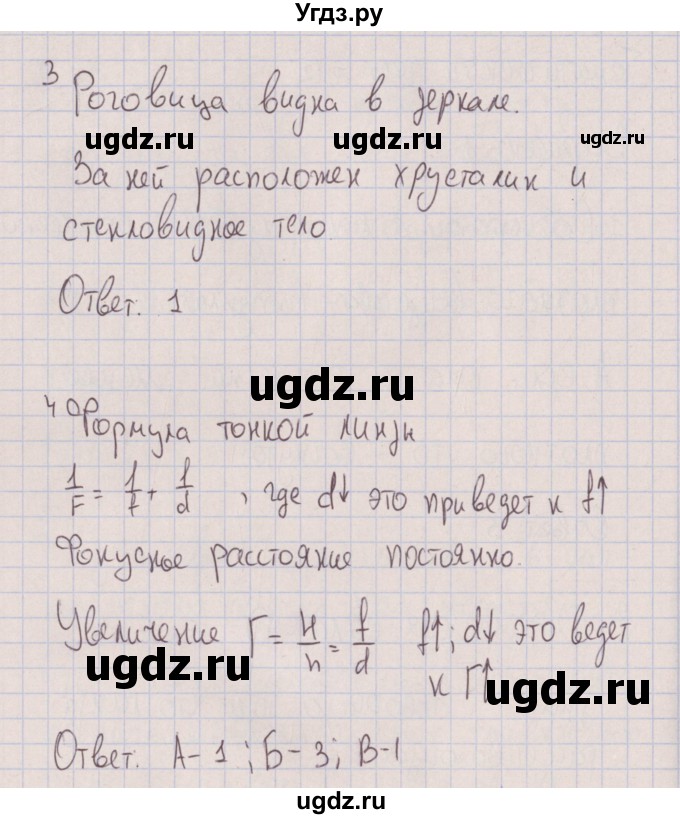 Угдз.ру
3
Роговица видна в зеркале.
ugdz.ru ugdz.ru ugdz.ru
За ней расположен хрусталик и
стекловидное тело
Ответ. 1
ugdz.ru
4 Формула тонкой линзы
1/F = 1/f + 1/d , где d↓ это приведет к f↑
Фокусное расстояние постоянно.
Увеличение Г = H/h = f/d f↑; d↓ это ведет
к Г↑
ugdz.ru ugdz.ru
Ответ. А-1; Б-3; В-1
ugdz.ru